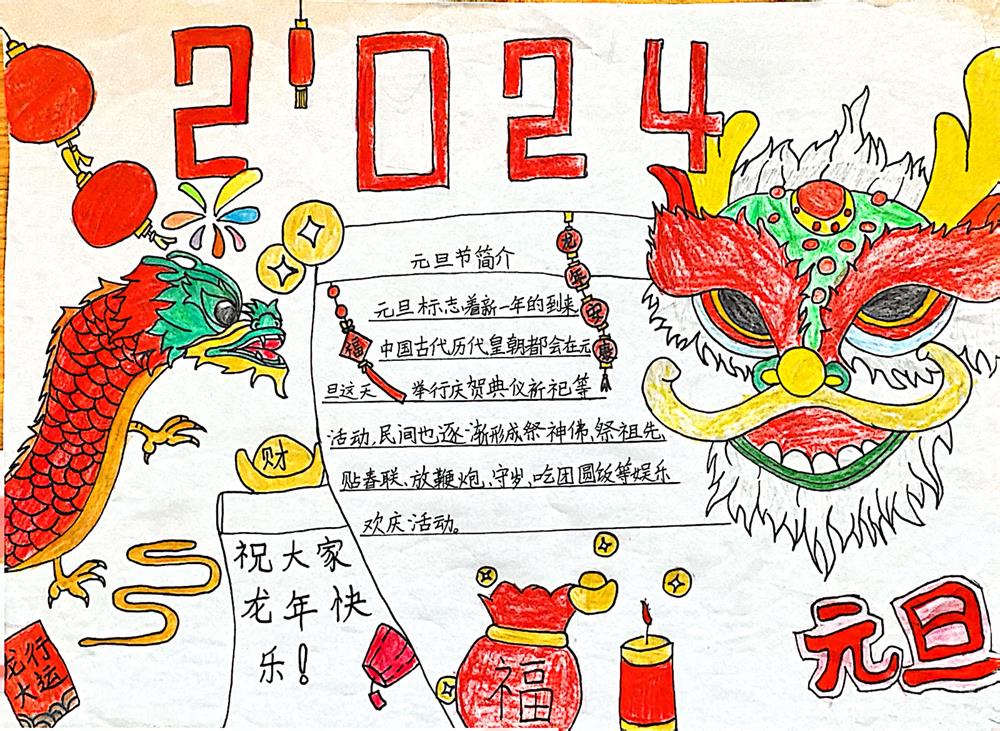 2024
元旦节简介
元旦标志着新一年的到来
中国古代历代皇朝都会在元
旦这天 举行庆贺典仪祈祀等
活动,民间也逐渐形成祭神佛、祭祖先、
贴春联、放鞭炮、守岁、吃团圆饭等娱乐
欢庆活动。
龙年安康
福
财
祝大家
龙年快
乐!
龙行
大运
福
元旦